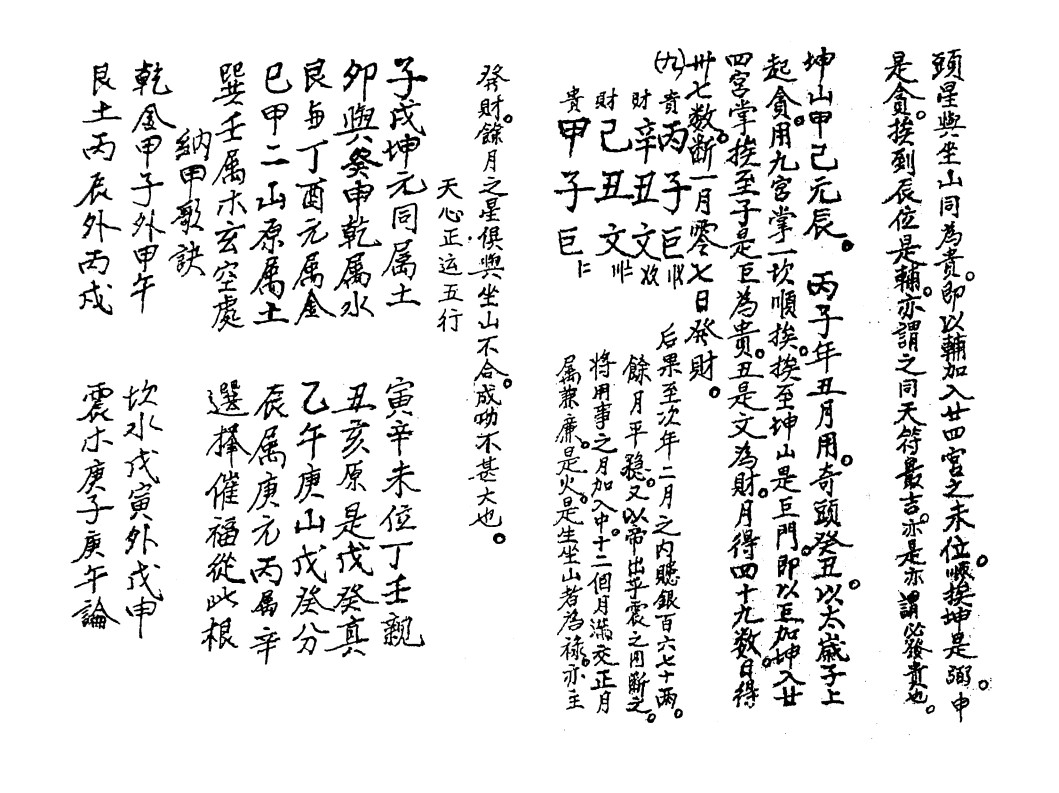 頭星與坐山同為貴。即以輔加入廿四宮之未位。順挨坤是弼。申
是貪。挨到辰位是輔。亦謂之同天符最吉。亦是亦謂必發貴也。
坤山甲己元辰。 丙子年丑月用。奇頭癸丑。以太歲子上
起貪。用九宮掌一坎順挨。挨至坤山是巨門。即以巨加坤入廿
四宮掌挨至子是巨為貴。丑是文為財。月得四十九數。日得
卅七數。斷一月零七日發財。
(九)
貴丙子巨
財辛丑文
財己丑文
貴甲子巨
后果至次年二月之內聽銀百六七十兩。
餘月平穩。又以帝出乎震之月斷之。
將用事之月加入中。十二個月滿交正月
屬兼廉。是火。是生坐山者為祿。亦主
發財。餘月之星俱與坐山不合。成功不甚大也。
天心正运五行
子戌坤元同属土 寅辛未位丁壬親
卯與癸申乾属水 丑亥原是戊癸真
艮与丁酉元属金 乙午庚山戊癸分
巳甲二山原属土 辰属庚元丙属辛
巽壬属木玄空處 選擇催福從此根
納甲歌訣
乾金甲子外甲午 坎水戊寅外戊申
艮土丙辰外丙戌 震木庚子庚午論